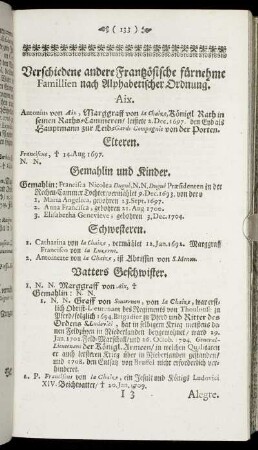 ( 133 )
Verschiedene andere Frantzösische fürnehme
Famillien nach Alphabetischer Ordnung.
Aix.
Antonin von Aix, Marggraff von la Chaize, Königl. Rath in
seinen Raths-Cammeren/ leistete 2. Dec. 1697. den Eyd als
Hauptmann zur Leib-Garde Compagnie von der Porten.
Elteren.
Franciscus, † 14. Aug 1697.
N. N.
Gemahlin und Kinder.
Gemahlin: Francisca Nicolea Dugué, N. N. Dugué Præsidenten in der
Rechen-Cammer Tochter/ vermählt 9. Dec. 1693. von der
1. Maria Angelica, gebohren 13. Sept. 1697.
2. Anna Francisca, gebohren 21. Aug. 1700.
3. Elisabetha Genevieve, gebohren 3. Dec. 1704.
Schwesteren.
1. Catharina von la Chaize, vermählet 12. Jan. 1692. Marggraff
Francisco von
2. Antoinette von la Chaize, ist Abtissin von
Vatters Geschwister.
1. N. N. Marggraff von Aix, †
Gemahlin: N. N.
1. N. N. Graff von von la Chaize, war erst-
lich Obrist-Lieutenant des Regiments von Thoulouse zu
Pferd/ folglich 1694. Brigadier zu Pferd und Ritter des
Ordens hat in selbigem Krieg meistens de-
nen Feldzügen in Niederlanden beygewohnt; ware 29.
Jan. 1702. Feld-Marschall/ und 26. Octob. 1704. General-
Lieutenant der Königl. Armeen/ in welchen Qualitäten
er auch letsteren Krieg über in Niederlanden gestanden/
und 1708. den Entsatz von Brüssel nicht erforderlich ver-
hindert.
2. P. Franciscus von la Chaize, ein Jesuit und Königs Ludovici
XIV. Beichtvatter/ † 20. Jan. 1709.
I 3 Alegre.